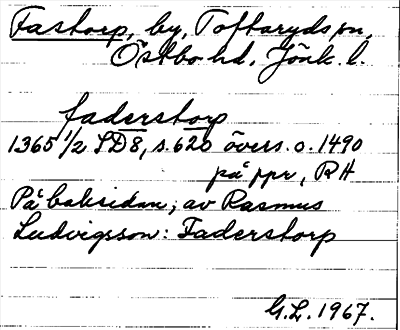 Fastorp, by, Toftaryds sn,
Östbo hd, Jönk. l.
faderstorp
1365 1/2 SD8, s. 620 övers. o. 1490
på ppr, RH
På baksidan, av Rasmus
Ludvigsson: Faderstorp
G.L. 1967.